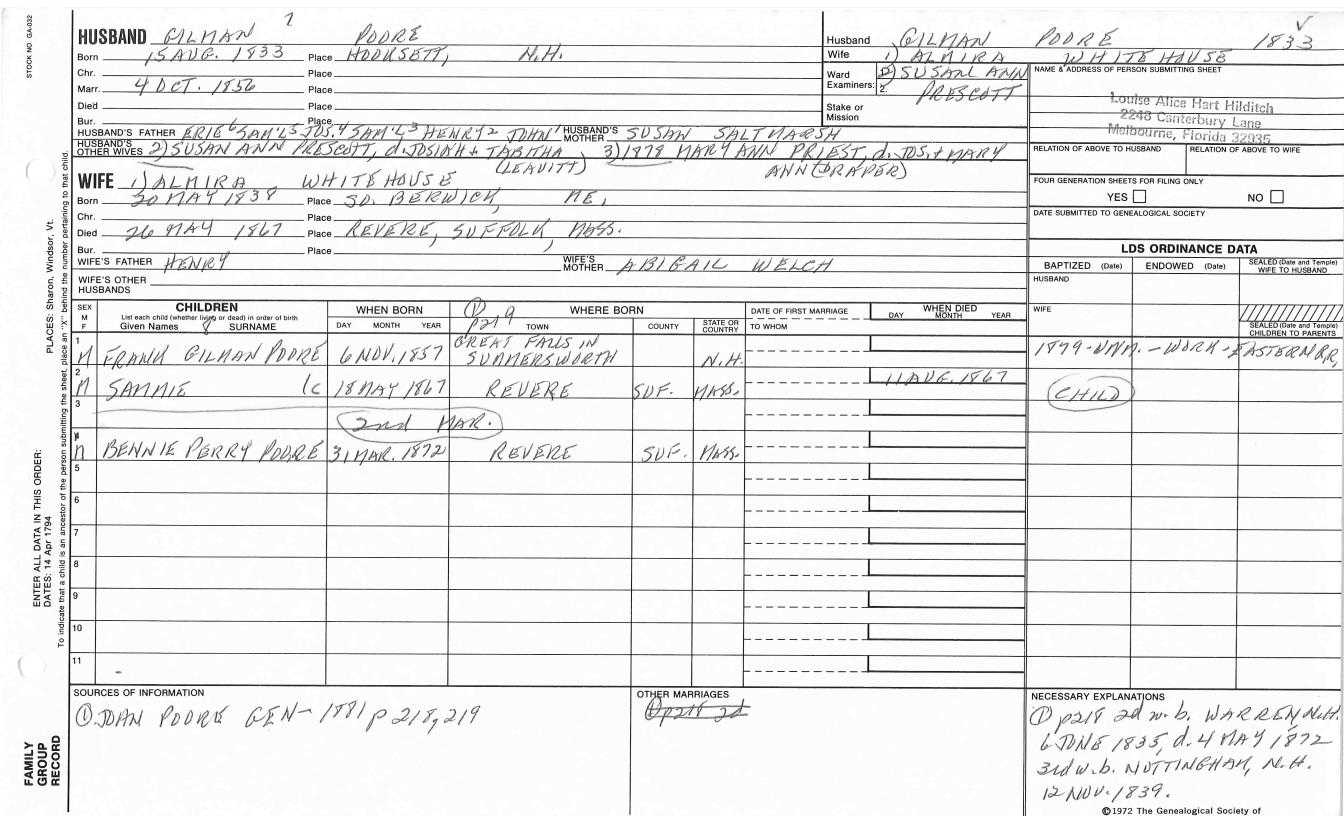 STOCK NO. GA-032
7
HUSBAND GILMAN POORE
Born 15 AUG. 1833 Place HOOKSETT, N.H.
Chr. Place
Marr. 4 OCT. 1856 Place
Died Place
Bur. Place
HUSBAND'S FATHER ERIE6 SAM'L5 JOS.4 SAM'L3 HENRY2 JOHN1 HUSBAND'S MOTHER SUSAN SALTMARSH
HUSBAND'S OTHER WIVES 2) SUSAN ANN PRESCOTT, d. JOSIAH + TABITHA (LEAVITT) 3) 1878 MARY ANN PRIEST, d. JOS. + MARY ANN (DRAPER)
Husband GILMAN POORE 1833
Wife 1) ALMIRA WHITEHOUSE
Ward Examiners: 1. 2) SUSAN ANN
2. PRESCOTT
Stake or Mission
NAME & ADDRESS OF PERSON SUBMITTING SHEET
Louise Alice Hart Hilditch
2248 Canterbury Lane
Melbourne, Florida 32935
RELATION OF ABOVE TO HUSBAND RELATION OF ABOVE TO WIFE
FOUR GENERATION SHEETS FOR FILING ONLY
YES NO
DATE SUBMITTED TO GENEALOGICAL SOCIETY
WIFE 1) ALMIRA WHITEHOUSE
Born 30 MAY 1838 Place SO. BERWICK, ME,
Chr. Place
Died 26 MAY 1867 Place REVERE, SUFFOLK, MASS.
Bur. Place
WIFE'S FATHER HENRY WIFE'S MOTHER ABIGAIL WELCH
WIFE'S OTHER HUSBANDS
LDS ORDINANCE DATA
BAPTIZED (Date) ENDOWED (Date) SEALED (Date and Temple) WIFE TO HUSBAND
HUSBAND
WIFE
SEALED (Date and Temple) CHILDREN TO PARENTS
SEX M F CHILDREN
List each child (whether living or dead) in order of birth
Given Names 8 SURNAME
WHEN BORN DAY MONTH YEAR
① p219 WHERE BORN TOWN COUNTY STATE OR COUNTRY
DATE OF FIRST MARRIAGE TO WHOM
WHEN DIED DAY MONTH YEAR
1 M FRANK GILMAN POORE 6 NOV. 1857 GREAT FALLS IN SUMMERSWORTH N.H. 1879-UNM.-WORK-EASTERN RR,
2 M SAMMIE 18 MAY 1867 REVERE SUF. MASS. 11 AUG. 1867 CHILD
3 2nd MAR.
4 M BENNIE PERRY POORE 31 MAR. 1872 REVERE SUF. MASS.
5
6
7
8
9
10
11
SOURCES OF INFORMATION
① JOHN POORE GEN- 1881 p 218, 219
OTHER MARRIAGES
① p218 2d
NECESSARY EXPLANATIONS
① p218 2d w. b. WARREN N.H.
6 JUNE 1835, d. 4 MAY 1872
3rd w. b. NOTTINGHAM, N.H.
12 NOV. 1839.
©1972 The Genealogical Society of
PLACES: Sharon, Windsor, Vt.
To indicate that a child is an ancestor of the person submitting the sheet, place an "X" behind the number pertaining to that child.
ENTER ALL DATA IN THIS ORDER:
DATES: 14 Apr 1794
FAMILY
GROUP
RECORD